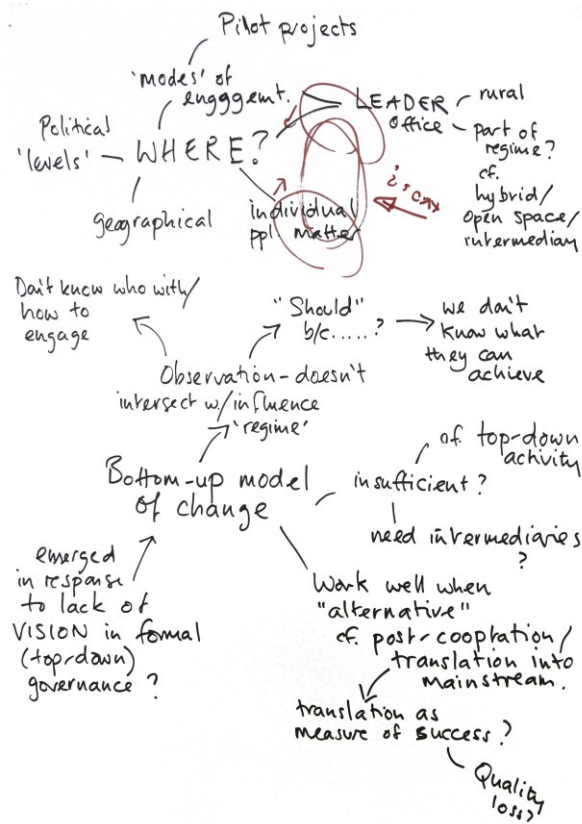 Pilot projects
'modes' of
engggemt.
Political
'levels'
WHERE?
geographical
individual
ppl matter
LEADER
office
rural
part of
regime?
cf.
hybrid/
open space/
intermediary
Don't know who with/
how to
engage
"Should"
b/c.....?
we don't
know what
they can
achieve
Observation - doesn't
intersect w/influence
'regime'
Bottom-up model
of change
insufficient?
cf top-down
activity
need intermediaries
?
emerged
in response
to lack of
VISION in formal
(top-down)
governance?
Work well when
"alternative"
cf. post-cooptation/
translation into
mainstream.
translation as
measure of success?
Quality
loss?